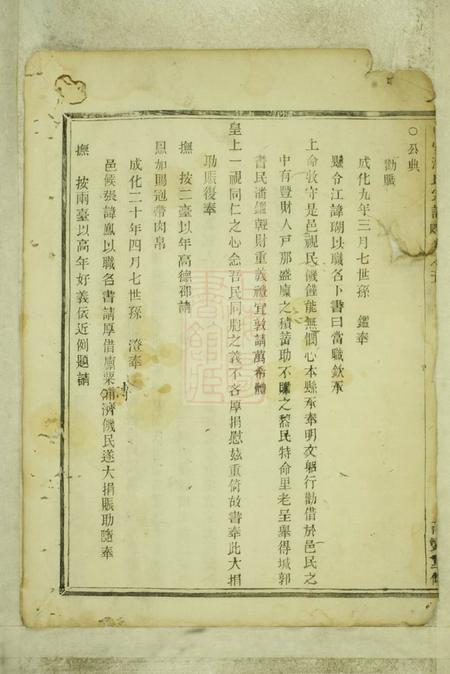 ○公典
勸賑
成化九年三月七世孫 鑑奉
縣令江諱瑚以職名卜書曰當職欽承
上命敎守是邑視民饑饉能無憫心本縣承奉明文躬行勸借於邑民之
中有豐財人戶那盛廩之積蓄助不贍之黎民特命里老呈舉得城郭
耆民潘鑑輕財重義禮宜敦請萬希體
皇上一視同仁之心念吾民同胞之義不吝厚捐慰玆重倚故書奉此大捐
助賑復奉
撫 按二臺以年高德邵請
恩加賜冠帶肉帛
成化二十年四月七世孫 澄奉
邑候張諱鳳以職名書請厚借廩粟 濟饑民遂大捐賑助隨奉
撫 按兩臺以高年好義依近例題請